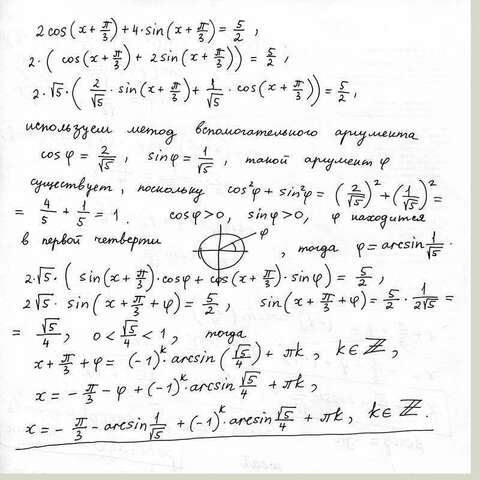 2cos(x+π/3)+4·sin(x+π/3)=5/2,
2·(cos(x+π/3)+2sin(x+π/3))=5/2,
2·√5·(2/√5·sin(x+π/3)+1/√5·cos(x+π/3))=5/2,
используем метод вспомогательного аргумента
cosφ=2/√5, sinφ=1/√5, такой аргумент φ
существует, поскольку cos²φ+sin²φ=(2/√5)²+(1/√5)²=
=4/5+1/5=1. cosφ>0, sinφ>0, φ находится
в первой четверти φ, тогда φ=arcsin1/√5.
2·√5·(sin(x+π/3)·cosφ+cos(x+π/3)·sinφ)=5/2,
2√5·sin(x+π/3+φ)=5/2, sin(x+π/3+φ)=5/2·1/2√5=
=√5/4, 0<√5/4<1, тогда
x+π/3+φ=(-1)^k·arcsin(√5/4)+πk, k∈ℤ,
x=-π/3-φ+(-1)^k·arcsin√5/4+πk,
x=-π/3-arcsin1/√5+(-1)^k·arcsin√5/4+πk, k∈ℤ.